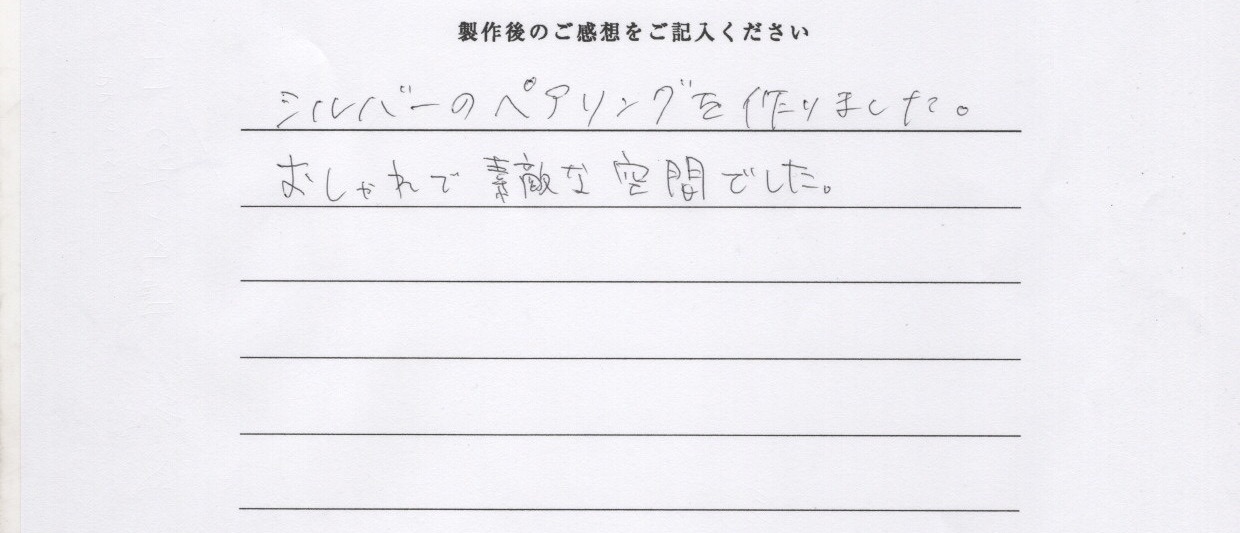 製作後のご感想をご記入ください
シルバーのペアリングを作りました。
おしゃれで素敵な空間でした。